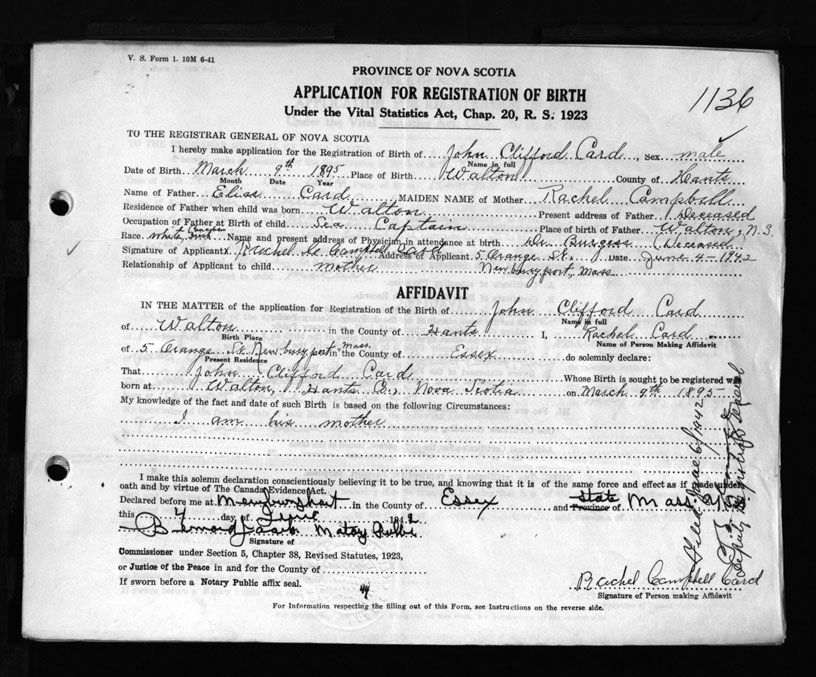 V. S. Form 1. 10M 6-41
PROVINCE OF NOVA SCOTIA
APPLICATION FOR REGISTRATION OF BIRTH
Under the Vital Statistics Act, Chap. 20, R. S. 1923
1136
TO THE REGISTRAR GENERAL OF NOVA SCOTIA
I hereby make application for the Registration of Birth of John Clifford Card, Sex male
Name in full
Date of Birth March 9th 1895 Place of Birth Walton County of Hants
Month Date Year
Name of Father Elias Card MAIDEN NAME of Mother Rachel Campbell
Residence of Father when child was born Walton Present address of Father Deceased
Occupation of Father at Birth of child Sea Captain Place of birth of Father Walton, N.S.
Race white Name and present address of Physician in attendance at birth Dr. Burgess (Deceased)
Signature of Applicant Rachel Campbell Card Address of Applicant 5 Orange St. Date June 4-1942
Relationship of Applicant to child mother Newburyport, Mass.
AFFIDAVIT
IN THE MATTER of the application for Registration of the Birth of John Clifford Card
Name in full
of Walton in the County of Hants I, Rachel Card
Birth Place Name of Person Making Affidavit
of 5 Orange St. Newburyport Mass. in the County of Essex do solemnly declare:
Present Residence
That John Clifford Card Whose Birth is sought to be registered was
born at Walton, Hants Co., Nova Scotia on March 9th 1895
My knowledge of the fact and date of such Birth is based on the following Circumstances:
I am his mother
I make this solemn declaration conscientiously believing it to be true, and knowing that it is of the same force and effect as if made under
oath and by virtue of The Canada Evidence Act.
Declared before me at Newburyport in the County of Essex and Province of State Mass.
this 4 day of June 1942
Signature of
Commissioner under Section 5, Chapter 38, Revised Statutes, 1923,
or Justice of the Peace in and for the County of
If sworn before a Notary Public affix seal.
Rachel Campbell Card
Signature of Person making Affidavit
For Information respecting the filling out of this Form, see Instructions on the reverse side.
Deputy Registrar General